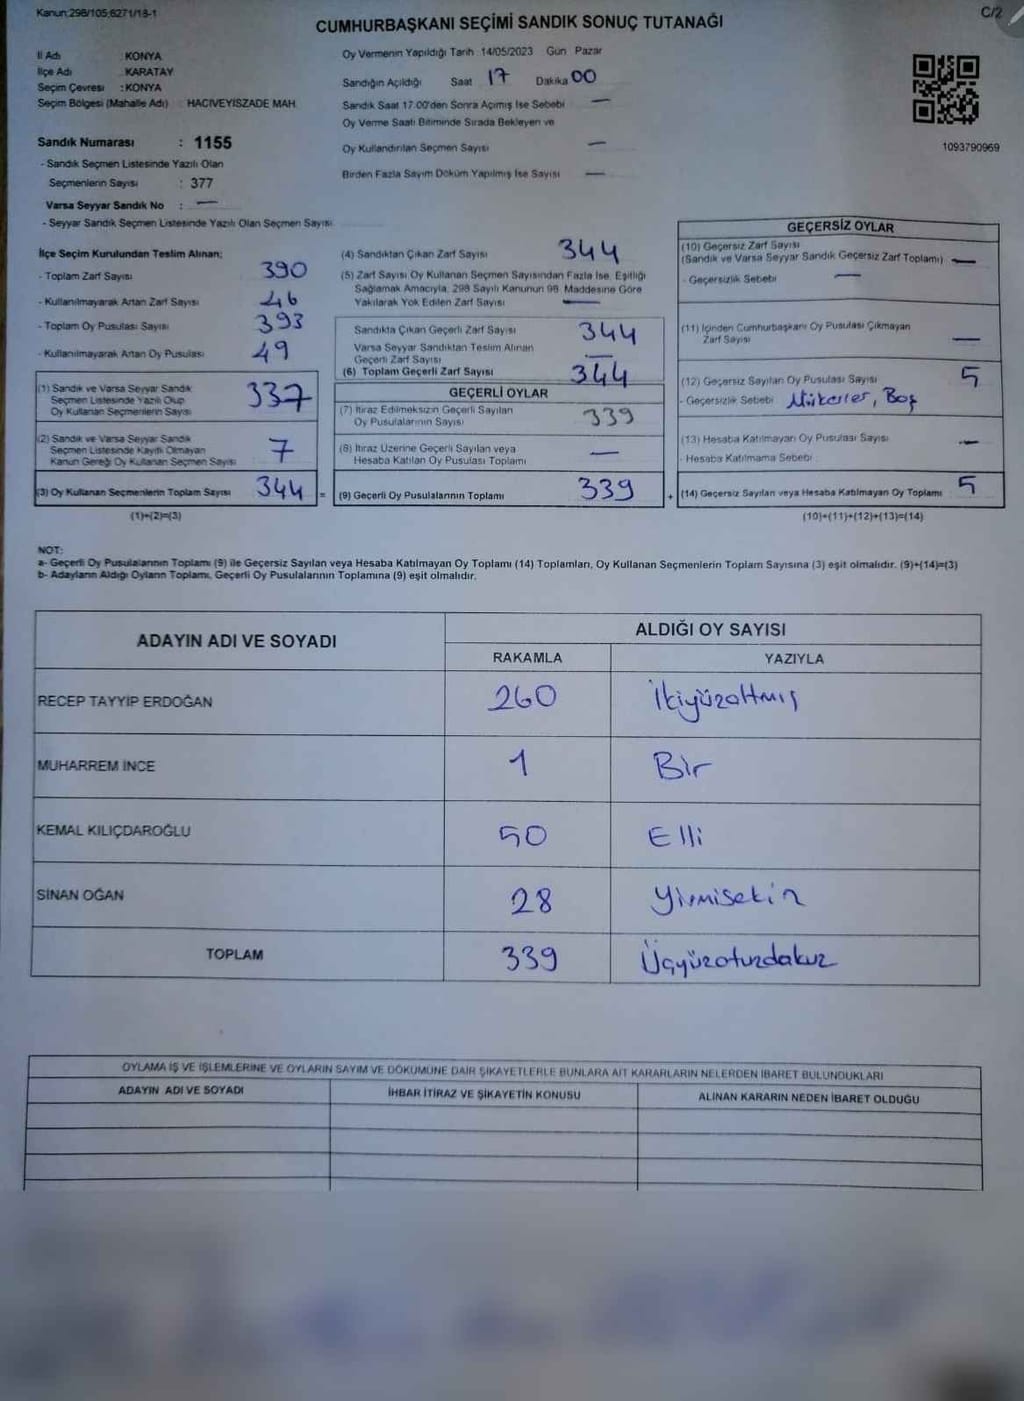 Kanun:298/105;6271/18-1
C/2
CUMHURBAŞKANI SEÇİMİ SANDIK SONUÇ TUTANAĞI
İl Adı : KONYA
İlçe Adı : KARATAY
Seçim Çevresi : KONYA
Seçim Bölgesi (Mahalle Adı) HACIVEYISZADE MAH.
Sandık Numarası : 1155
- Sandık Seçmen Listesinde Yazılı Olan
Seçmenlerin Sayısı : 377
Varsa Seyyar Sandık No : —
- Seyyar Sandık Seçmen Listesinde Yazılı Olan Seçmen Sayısı
Oy Vermenin Yapıldığı Tarih 14/05/2023 Gün Pazar
Sandığın Açıldığı Saat 17 Dakika 00
Sandık Saat 17.00'den Sonra Açımış İse Sebebi —
Oy Verme Saati Bitiminde Sırada Bekleyen ve
Oy Kullandırılan Seçmen Sayısı —
Birden Fazla Sayım Döküm Yapılmış İse Sayısı —
1093790969
İlçe Seçim Kurulundan Teslim Alınan;
- Toplam Zarf Sayısı 390
- Kullanılmayarak Artan Zarf Sayısı 46
- Toplam Oy Pusulası Sayısı 393
- Kullanılmayarak Artan Oy Pusulası 49
(1) Sandık ve Varsa Seyyar Sandık
Seçmen Listesinde Yazılı Olup
Oy Kullanan Seçmenlerin Sayısı 337
(2) Sandık ve Varsa Seyyar Sandık
Seçmen Listesinde Kayıtlı Olmayan
Kanun Gereği Oy Kullanan Seçmen Sayısı 7
(3) Oy Kullanan Seçmenlerin Toplam Sayısı 344 =
(1)+(2)=(3)
(4) Sandıktan Çıkan Zarf Sayısı 344
(5) Zarf Sayısı Oy Kullanan Seçmen Sayısından Fazla İse, Eşitliği
Sağlamak Amacıyla, 298 Sayılı Kanunun 98. Maddesine Göre
Yakılarak Yok Edilen Zarf Sayısı —
Sandıkta Çıkan Geçerli Zarf Sayısı 344
Varsa Seyyar Sandıktan Teslim Alınan
Geçerli Zarf Sayısı —
(6) Toplam Geçerli Zarf Sayısı 344
GEÇERLİ OYLAR
(7) İtiraz Edilmeksizin Geçerli Sayılan
Oy Pusulalarının Sayısı 339
(8) İtiraz Üzerine Geçerli Sayılan veya
Hesaba Katılan Oy Pusulası Toplamı —
(9) Geçerli Oy Pusulalarının Toplamı 339 +
GEÇERSİZ OYLAR
(10) Geçersiz Zarf Sayısı
(Sandık ve Varsa Seyyar Sandık Geçersiz Zarf Toplamı) —
- Geçersizlik Sebebi —
(11) İçinden Cumhurbaşkanı Oy Pusulası Çıkmayan
Zarf Sayısı —
(12) Geçersiz Sayılan Oy Pusulası Sayısı 5
- Geçersizlik Sebebi Mükerrer, Boş
(13) Hesaba Katılmayan Oy Pusulası Sayısı —
- Hesaba Katılmama Sebebi
(14) Geçersiz Sayılan veya Hesaba Katılmayan Oy Toplamı 5
(10)+(11)+(12)+(13)=(14)
NOT:
a- Geçerli Oy Pusulalarının Toplamı (9) ile Geçersiz Sayılan veya Hesaba Katılmayan Oy Toplamı (14) Toplamları, Oy Kullanan Seçmenlerin Toplam Sayısına (3) eşit olmalıdır. (9)+(14)=(3)
b- Adayların Aldığı Oyların Toplamı, Geçerli Oy Pusulalarının Toplamına (9) eşit olmalıdır.
ADAYIN ADI VE SOYADI
ALDIĞI OY SAYISI
RAKAMLA YAZIYLA
RECEP TAYYİP ERDOĞAN 260 İkiyüzaltmış
MUHARREM İNCE 1 Bir
KEMAL KILIÇDAROĞLU 50 Elli
SİNAN OĞAN 28 Yirmisekiz
TOPLAM 339 Üçyüzotuzdokuz
OYLAMA İŞ VE İŞLEMLERİNE VE OYLARIN SAYIM VE DÖKÜMÜNE DAİR ŞİKAYETLERLE BUNLARA AİT KARARLARIN NELERDEN İBARET BULUNDUKLARI
ADAYIN ADI VE SOYADI İHBAR İTİRAZ VE ŞİKAYETİN KONUSU ALINAN KARARIN NEDEN İBARET OLDUĞU